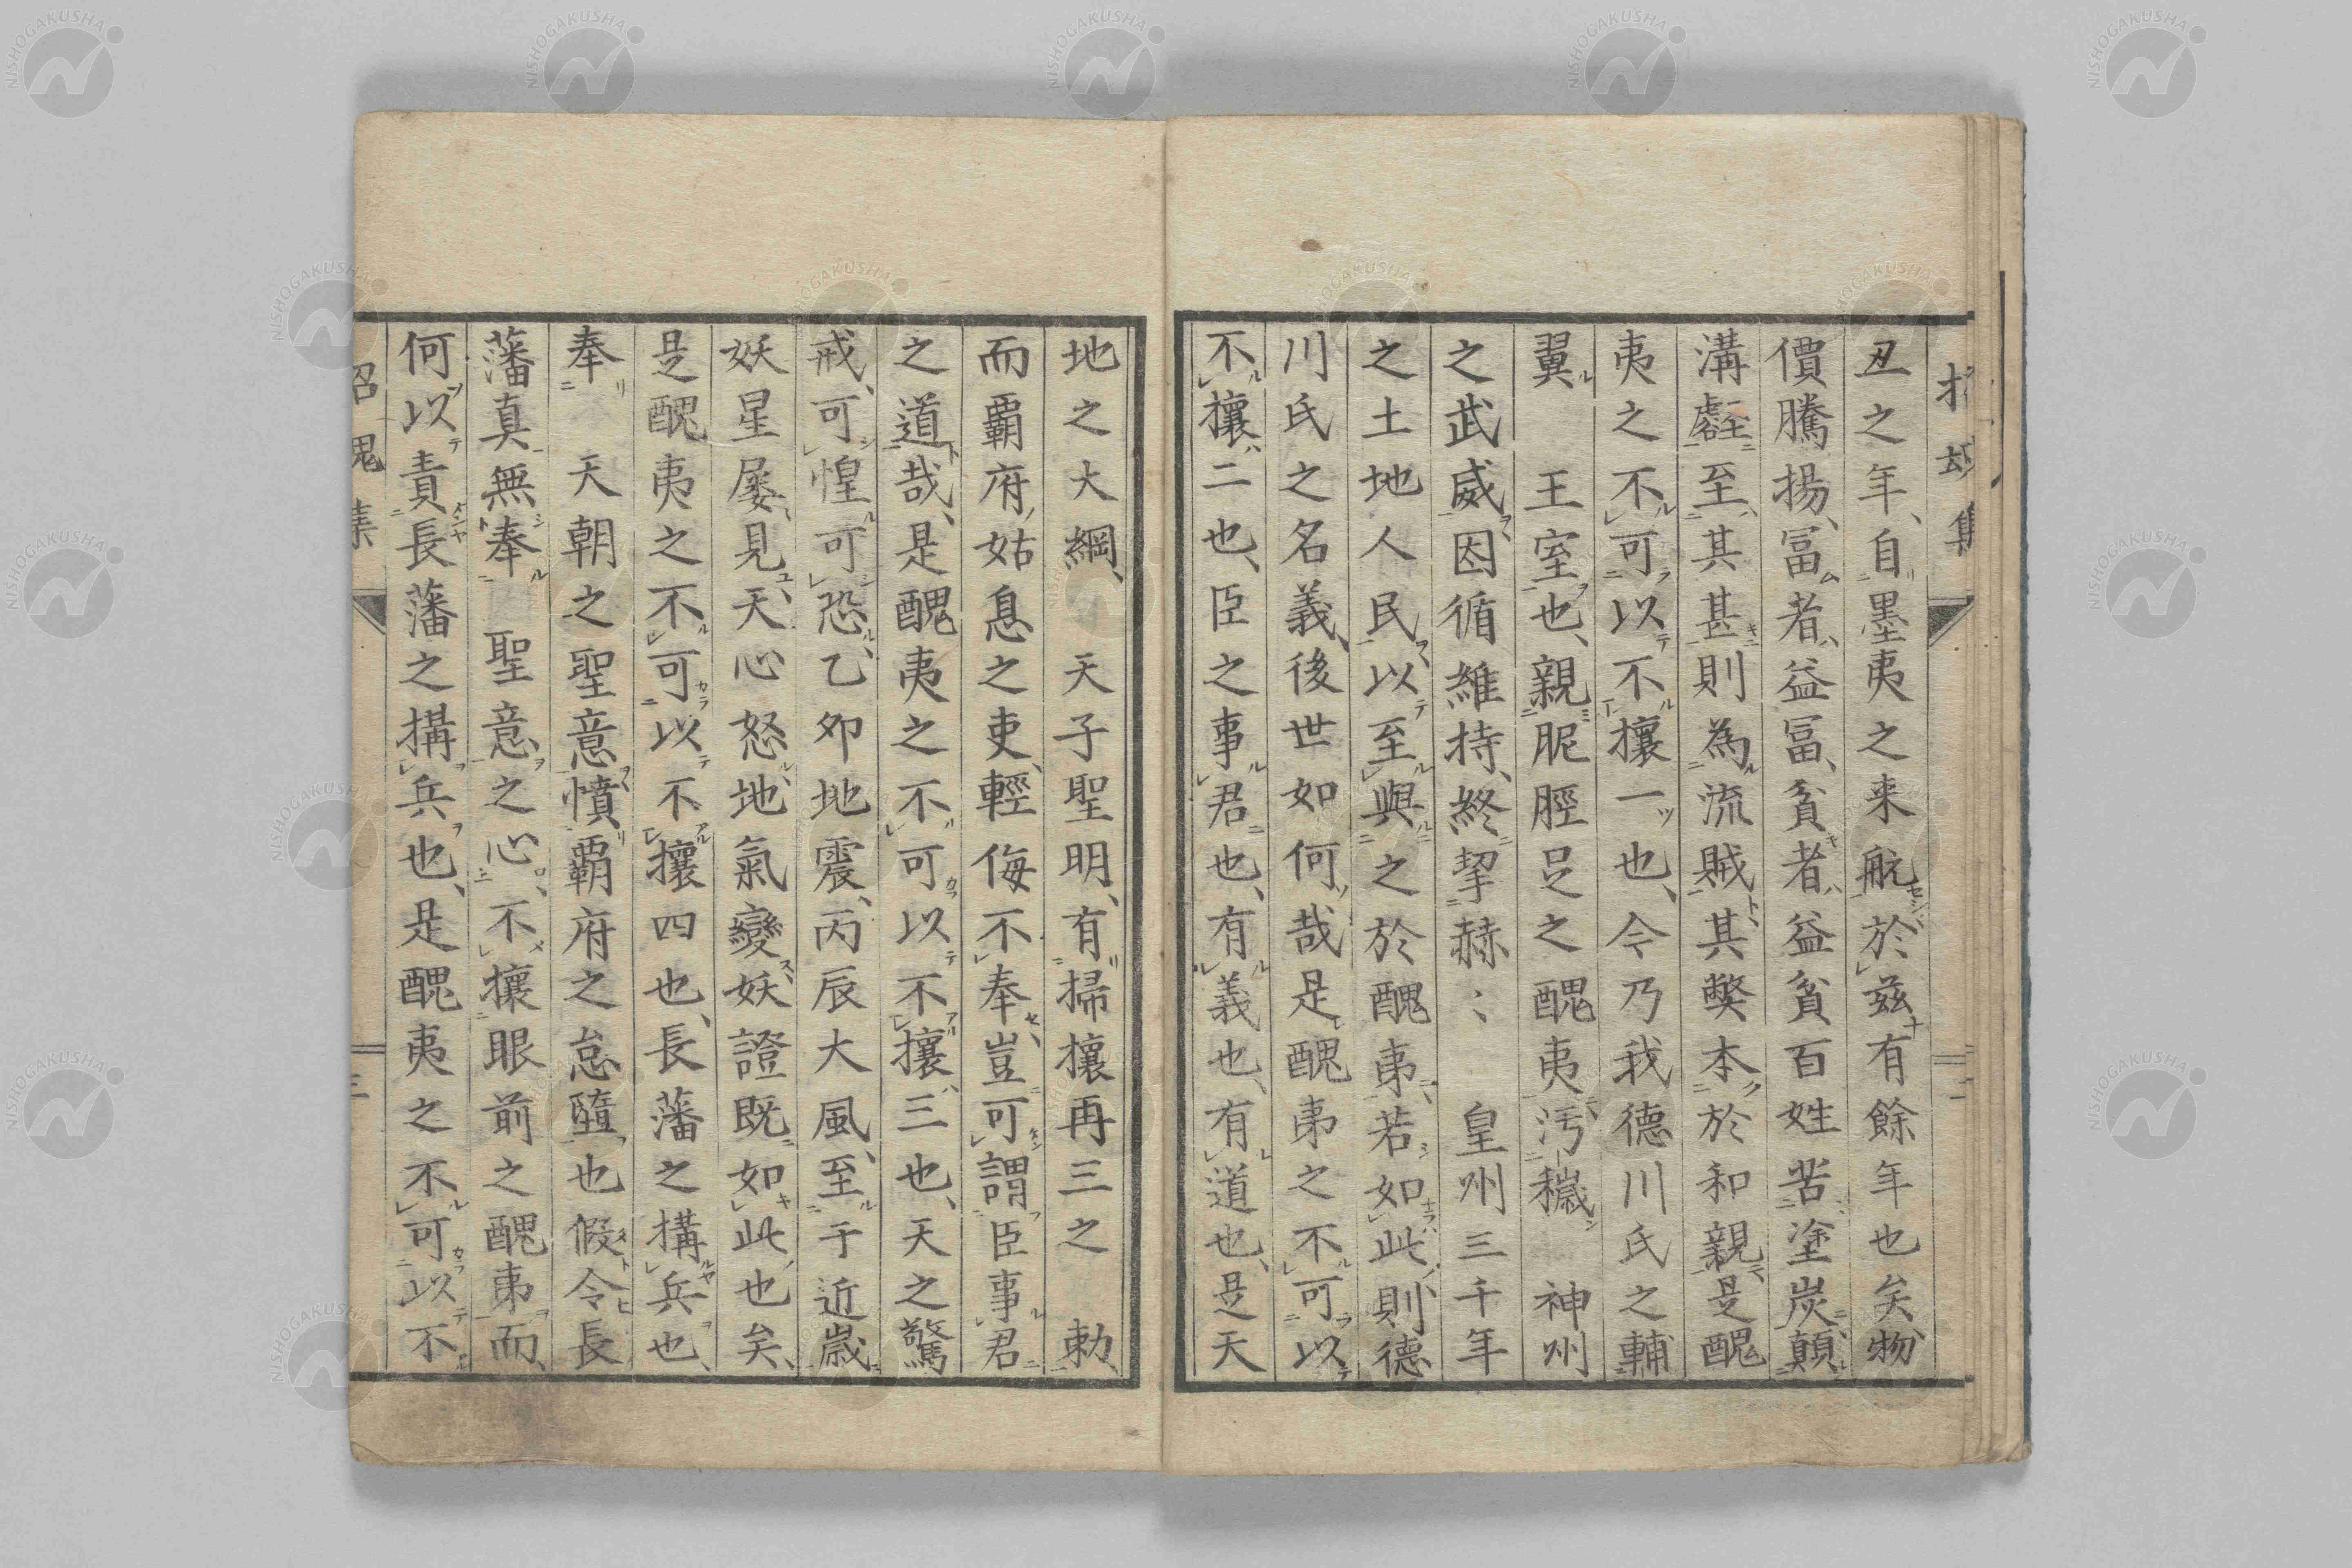 丑之年、自墨夷之来航於茲有餘年也矣物
價騰揚、冨者、益冨、貧者益貧百姓苦塗炭顛
溝壑至其甚則為流賊其弊本於和親是醜
夷之不可以不攘一也、今乃我德川氏之輔
翼　王室也、親昵脛足之醜夷汚穢　神州
之武威因循維持、終挈赫〻　皇州三千年
之土地人民以至與之於醜夷、若如此則德
川氏之名義、後世如何哉是醜夷之不可以
不攘二也、臣之事君也、有義也、有道也、是天
地之大綱、　天子聖明、有掃攘再三之　勅、
而覇府姑息之吏、輕侮不奉、豈可謂臣事君
之道哉、是醜夷之不可以不攘三也、天之驚
戒、可惶可恐、乙卯地震、丙辰大風、至于近歳
妖星屡見、天心怒、地氣變、妖證既如此也矣、
是醜夷之不可以不攘四也、長藩之搆兵也、
奉　天朝之聖意憤覇府之怠墮也假令長
藩真無奉　聖意之心、不攘眼前之醜夷而、
何以責長藩之搆兵也、是醜夷之不可以不
招魂集
三